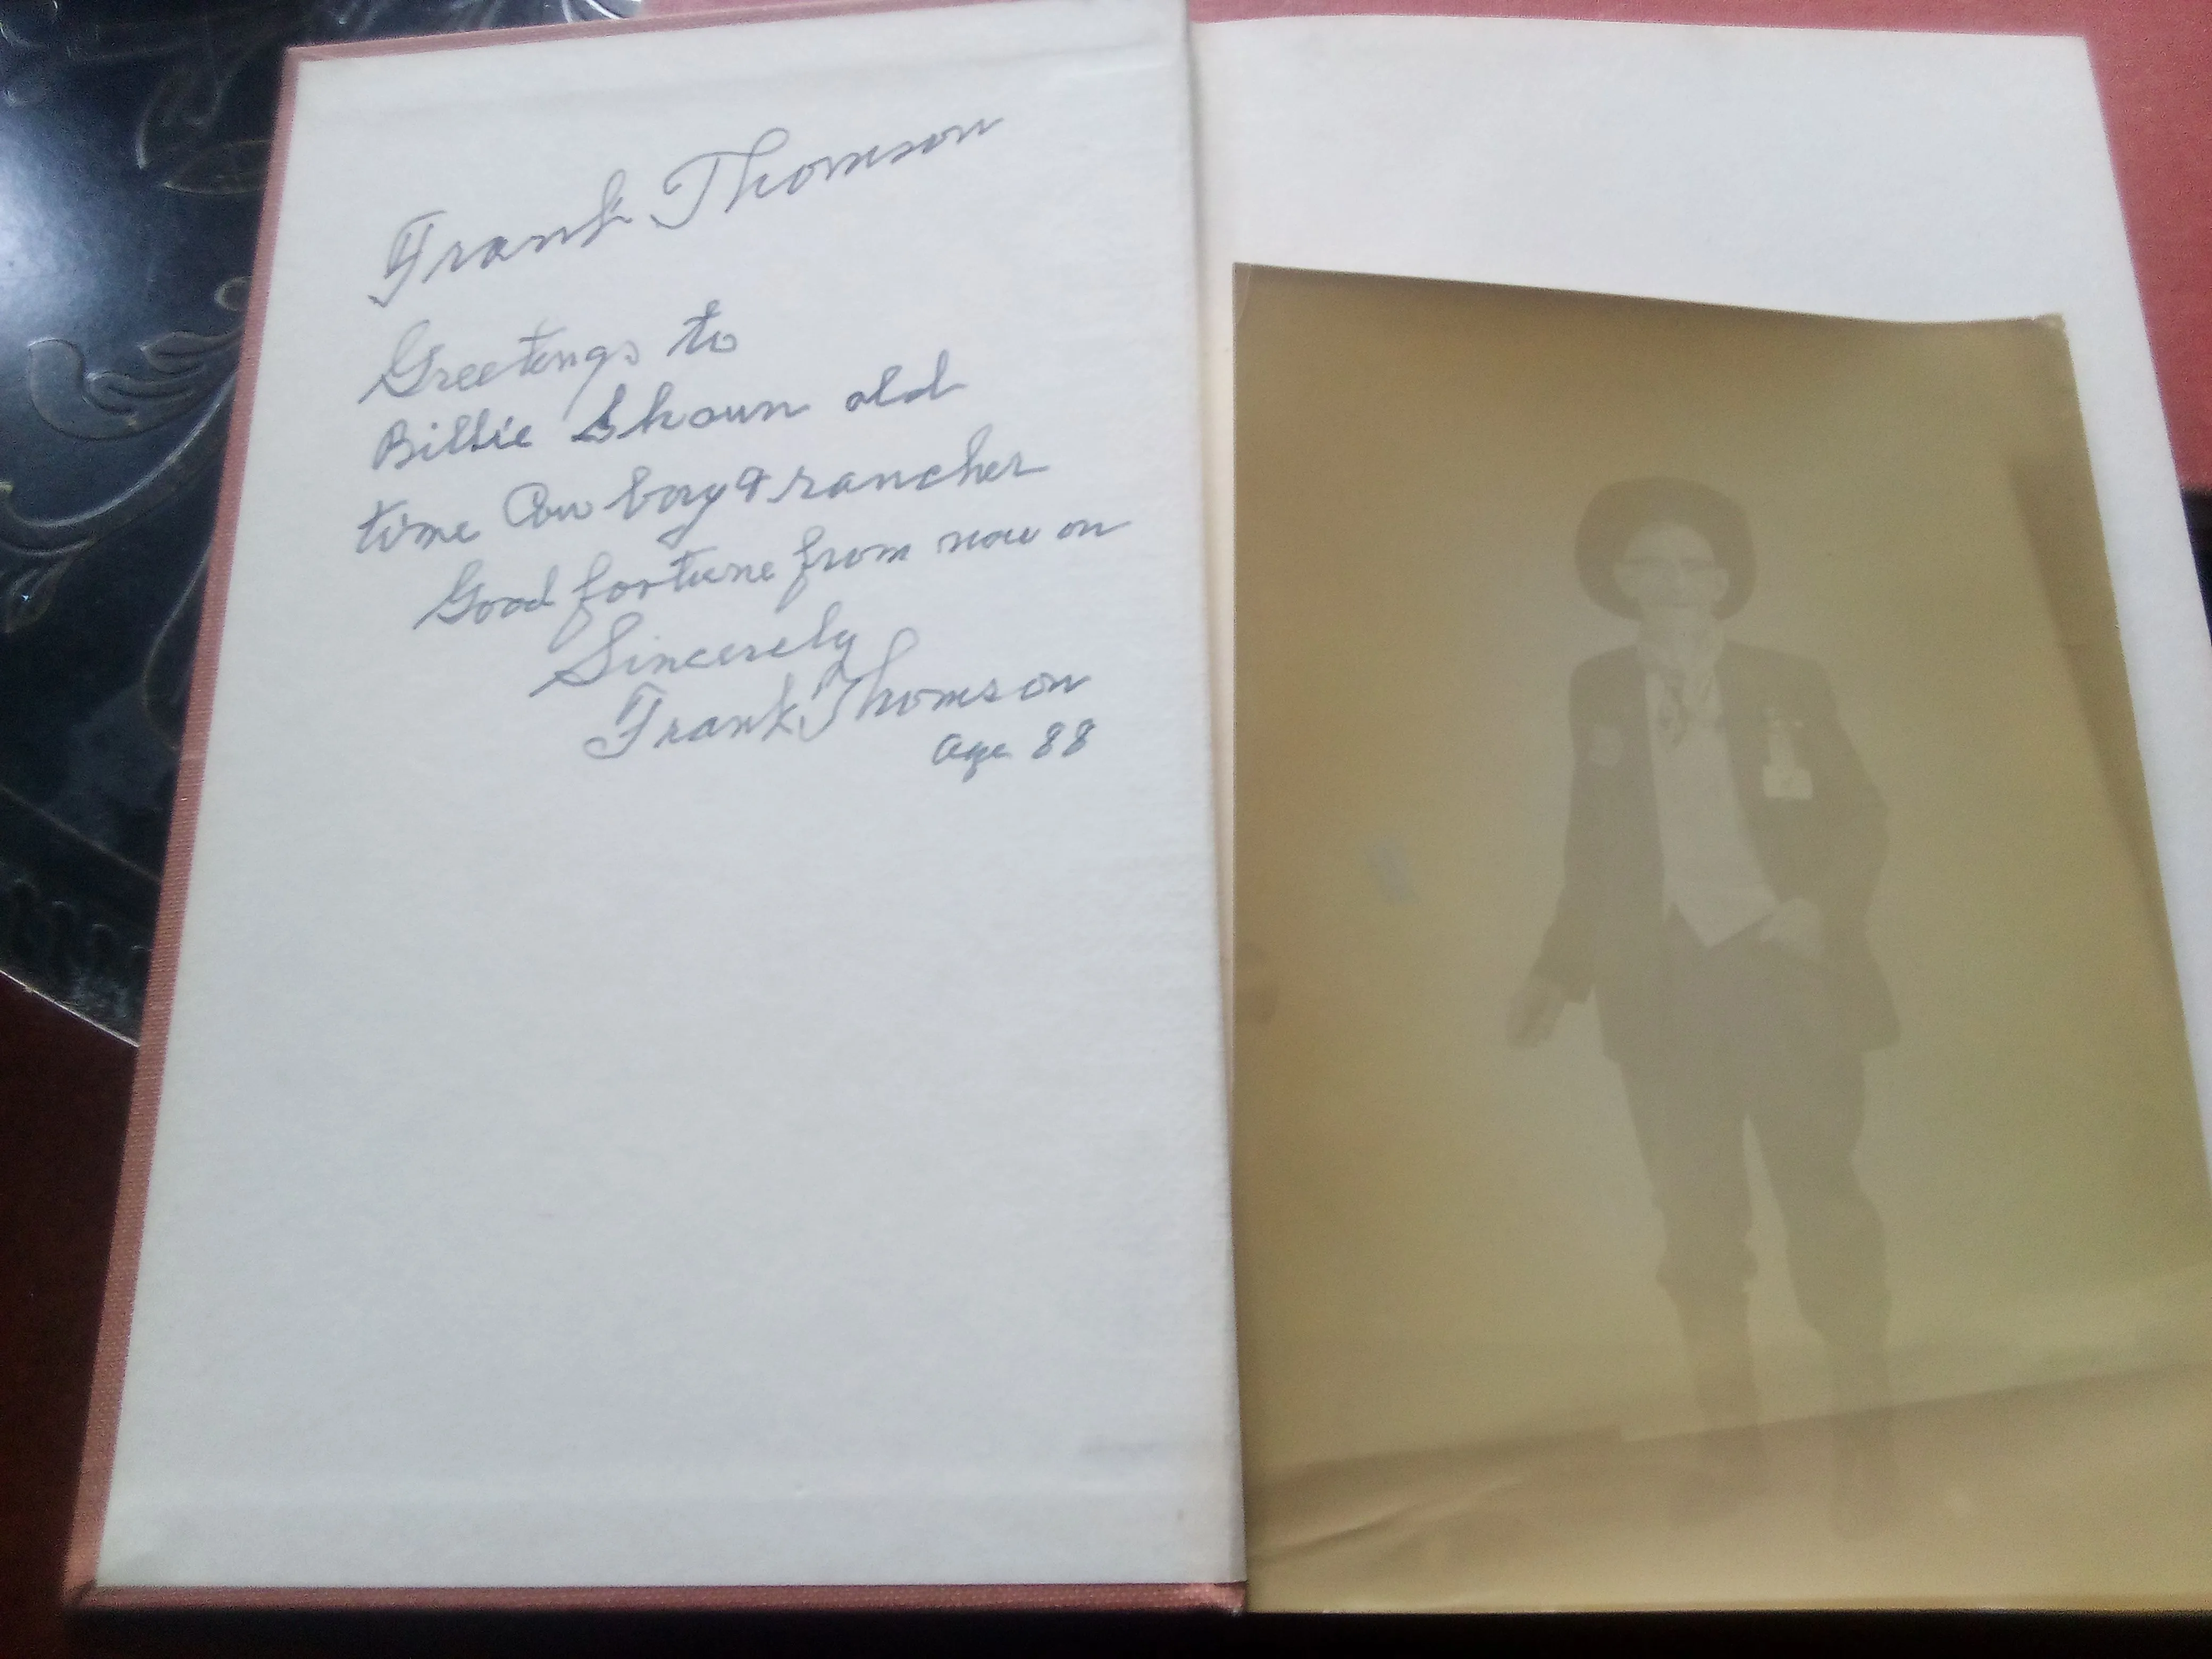 Frank Thomson
Greetings to
Billie Shoun old
time Cow boy & rancher
Good fortune from now on
Sincerely
Frank Thomson
age 88